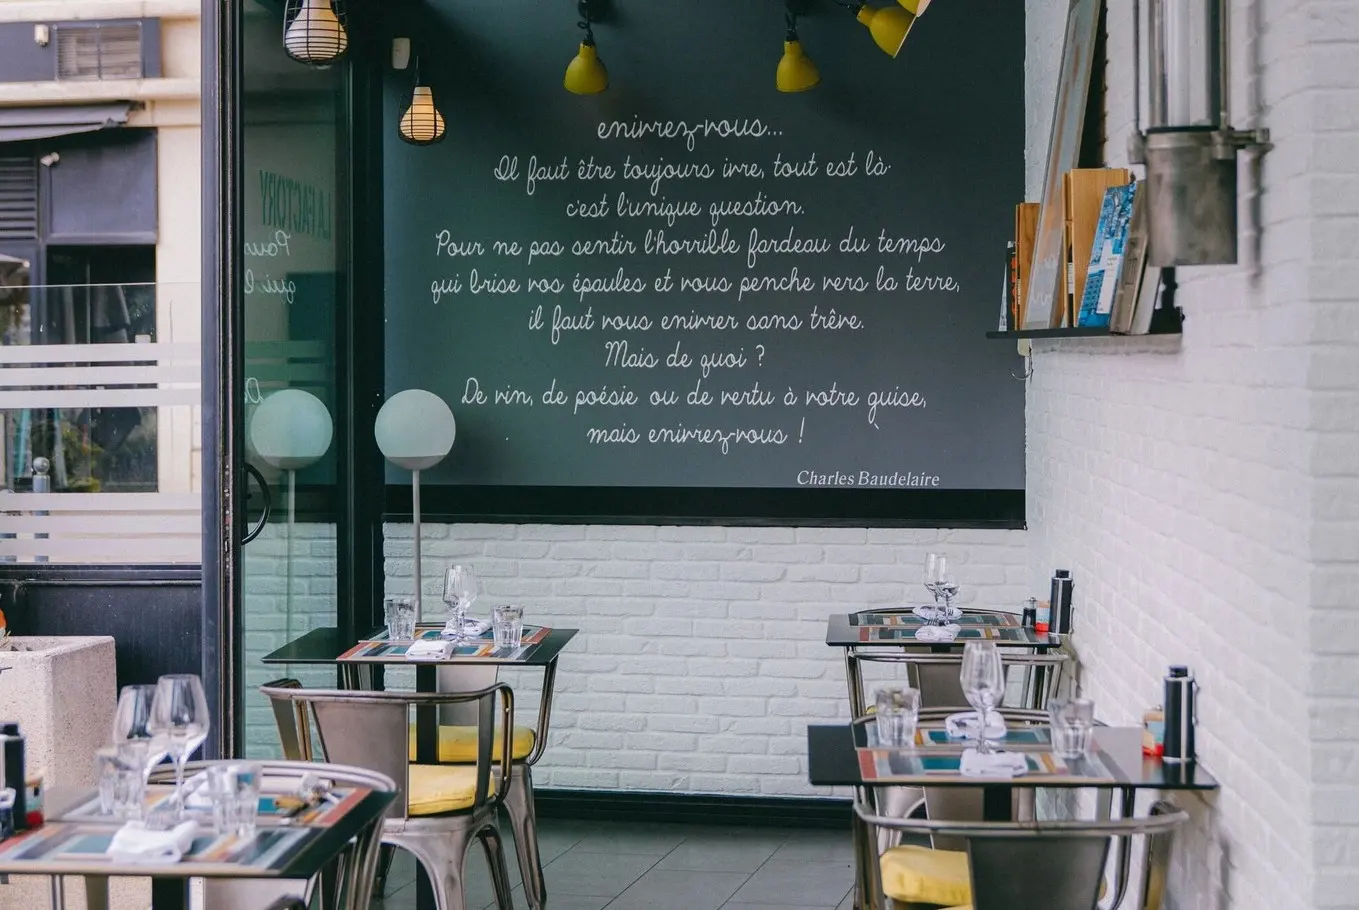 enivrez-vous...
Il faut être toujours ivre, tout est là
c'est l'unique question.
Pour ne pas sentir l'horrible fardeau du temps
qui brise vos épaules et vous penche vers la terre,
il faut vous enivrer sans trêve.
Mais de quoi ?
De vin, de poésie ou de vertu à votre guise,
mais enivrez-vous !
Charles Baudelaire
LA FACTORY
Pour
qui b
De